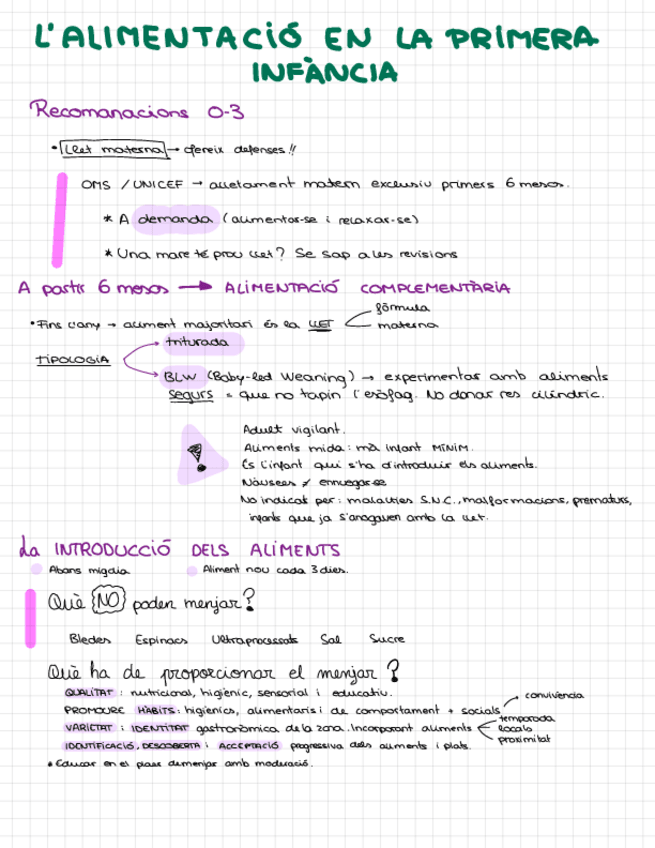 L'ALIMENTACIÓ EN LA PRIMERA
INFÀNCIA
Recomanacions 0-3
• Llet materna → ofereix defenses!!
OMS / UNICEF → alletament matern exclusiu primers 6 mesos.
* A demanda (alimentar-se i relaxar-se)
* Una mare té prou llet? Se sap a les revisions
A partir 6 mesos → ALIMENTACIÓ COMPLEMENTÀRIA
• Fins l'any → aliment majoritari és la LLET
fórmula
materna
TIPOLOGIA
triturada
BLW (Baby-led Weaning) → experimentar amb aliments
segurs = que no tapin l'esòfag. No donar res cilíndric.
!
Adult vigilant.
Aliments mida: mà infant MÍNIM.
És l'infant qui s'ha d'introduir els aliments.
Nàusees ≠ ennuegar-se
No indicat per: malalties S.N.C., malformacions, prematurs,
infants que ja s'anaguen amb la llet.
La INTRODUCCIÓ DELS ALIMENTS
Abans migdia
Aliment nou cada 3 dies.
Què NO poden menjar?
Bledes Espinacs Ultraprocessats Sal Sucre
Què ha de proporcionar el menjar?
QUALITAT: nutricional, higiènic, sensorial i educatiu.
PROMOURE HÀBITS: higiènics, alimentaris i de comportament + socials → convivència
VARIETAT i IDENTITAT gastronòmica de la zona. Incorporant aliments
temporada
locals
proximitat
IDENTIFICACIÓ, DESCOBERTA i ACCEPTACIÓ progressiva dels aliments i plats.
• Educar en el plaer de menjar amb moderació.